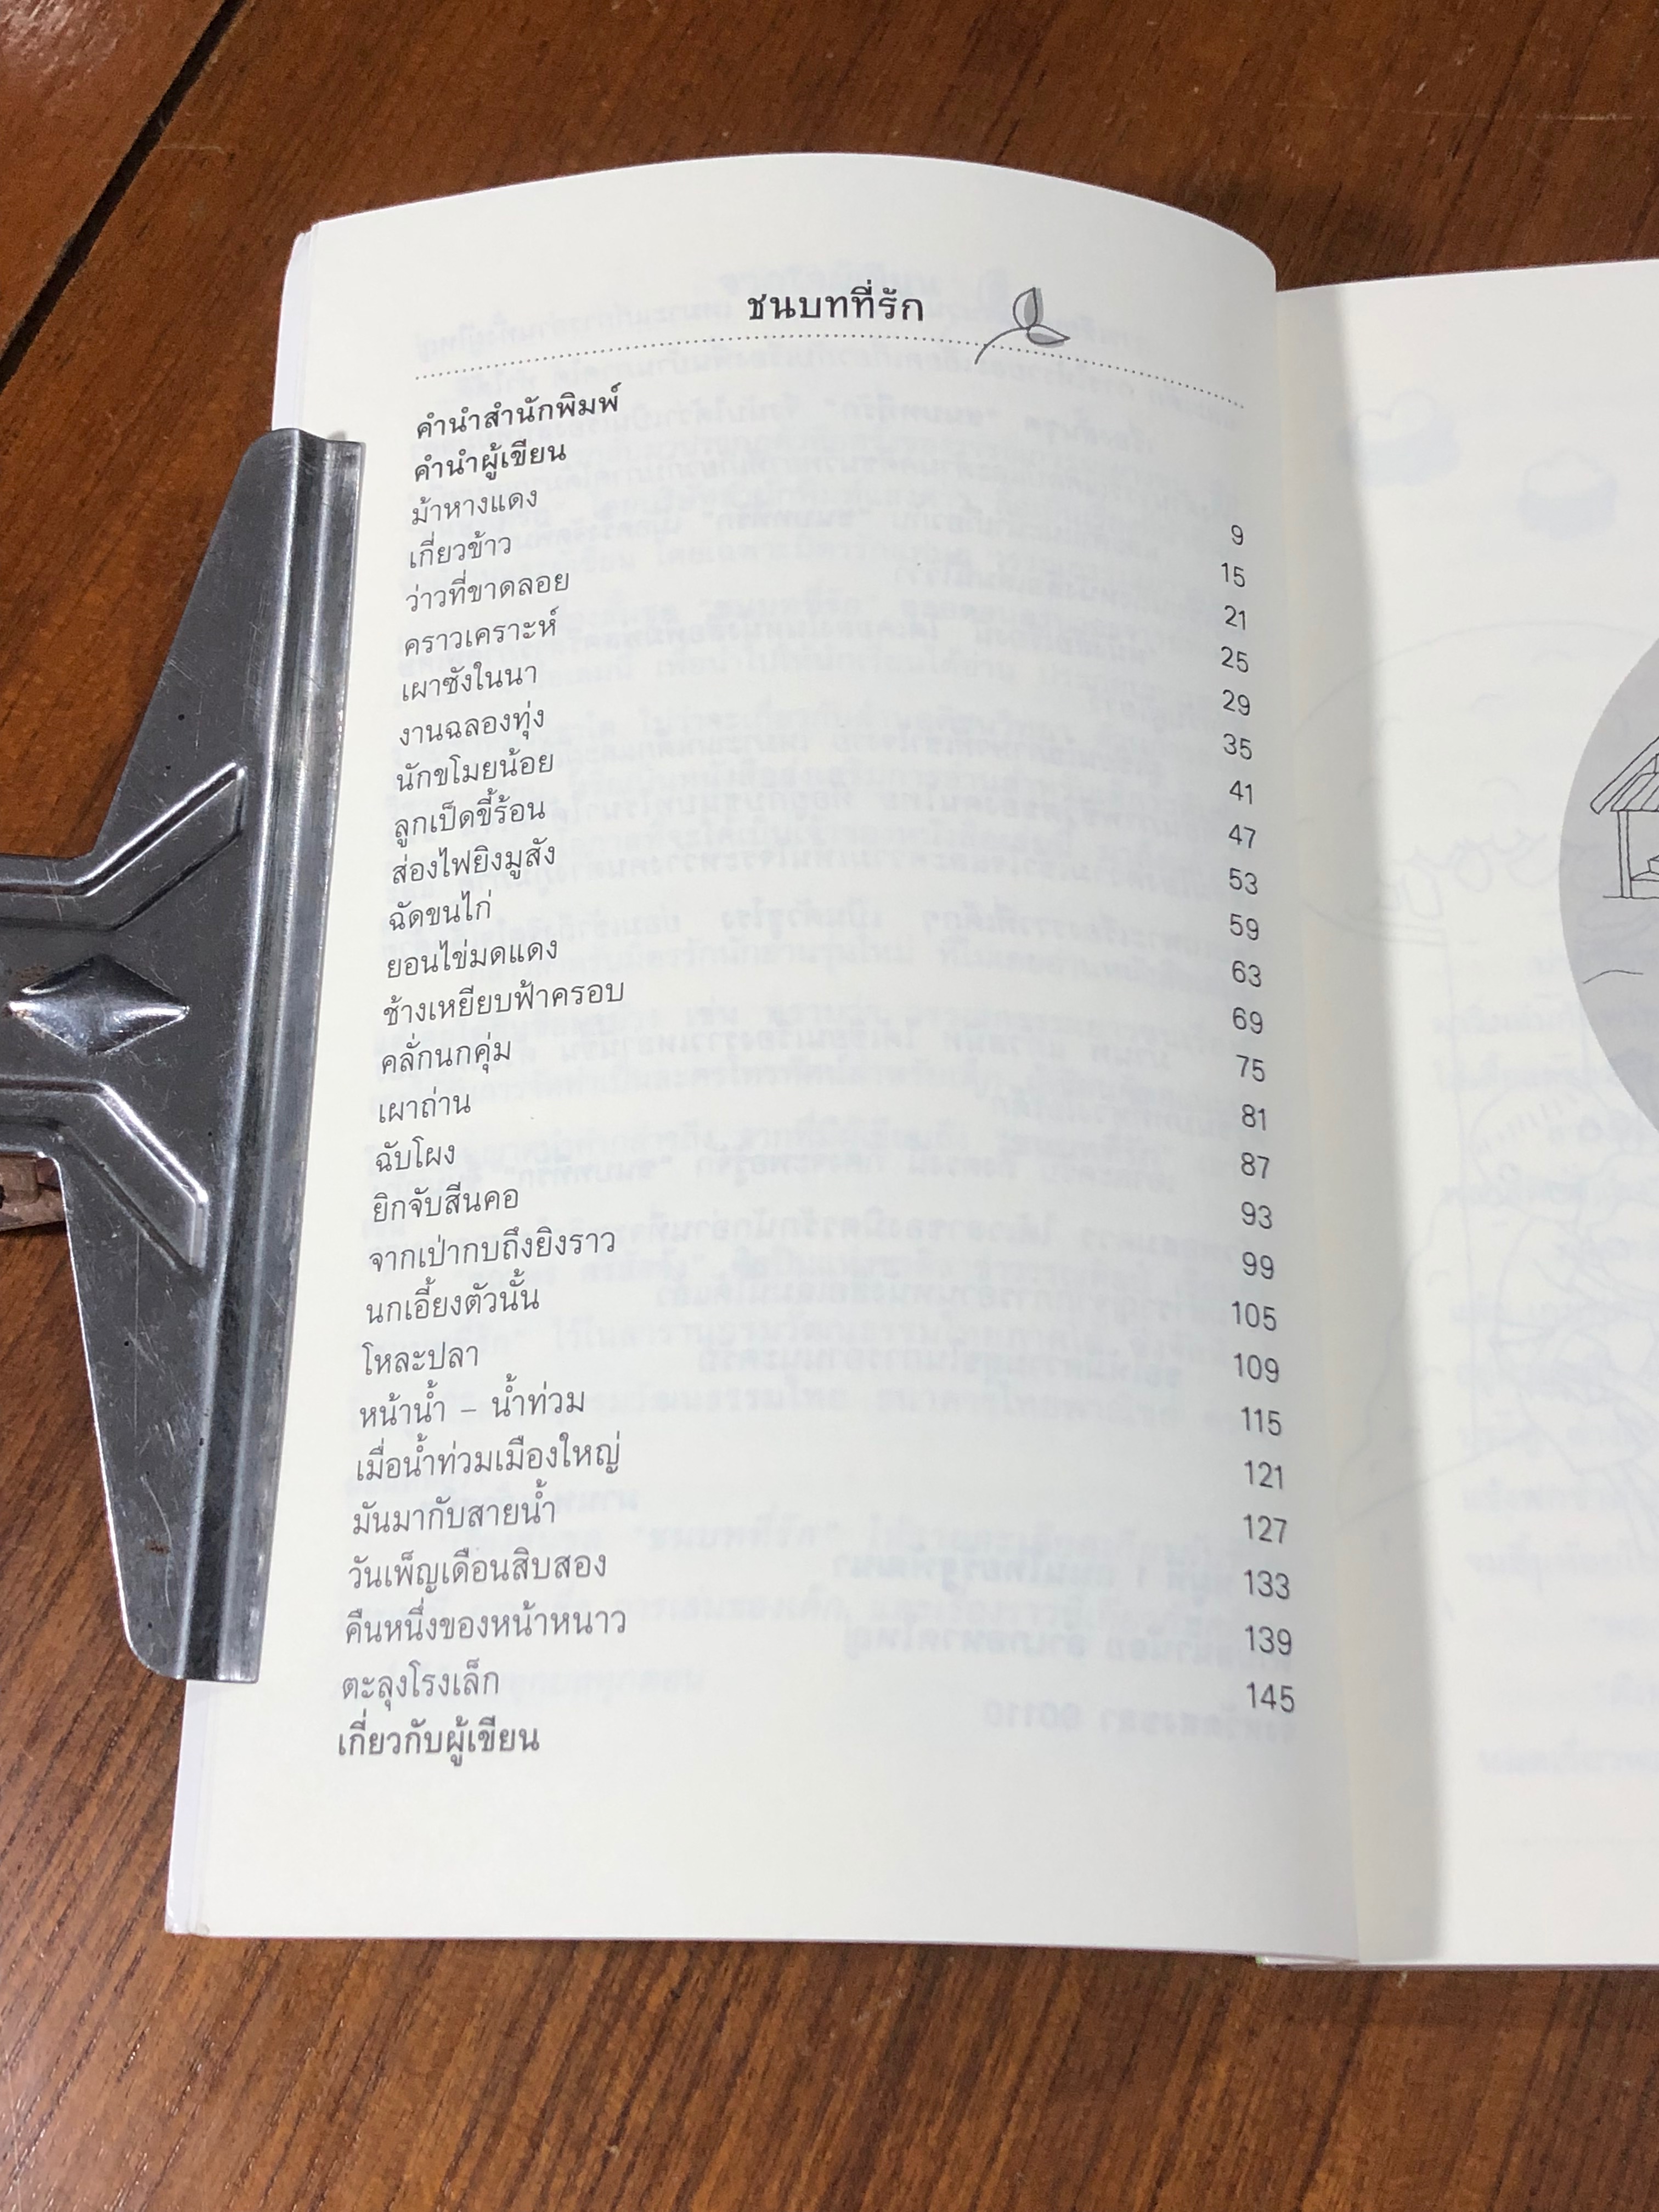 ชนบทที่รัก
คำนำสำนักพิมพ์
คำนำผู้เขียน
ม้าหางแดง 9
เกี่ยวข้าว 15
ว่าวที่ขาดลอย 21
คราวเคราะห์ 25
เผาซังในนา 29
งานฉลองทุ่ง 35
นักขโมยน้อย 41
ลูกเป็ดขี้ร้อน 47
ส่องไฟยิงมูสัง 53
ฉัดขนไก่ 59
ยอนไข่มดแดง 63
ช้างเหยียบฟ้าครอบ 69
คลั่กนกคุ่ม 75
เผาถ่าน 81
ฉับโผง 87
ยิกจับสีนคอ 93
จากเป่ากบถึงยิงราว 99
นกเอี้ยงตัวนั้น 105
โหละปลา 109
หน้าน้ำ – น้ำท่วม 115
เมื่อน้ำท่วมเมืองใหญ่ 121
มันมากับสายน้ำ 127
วันเพ็ญเดือนสิบสอง 133
คืนหนึ่งของหน้าหนาว 139
ตะลุงโรงเล็ก 145
เกี่ยวกับผู้เขียน